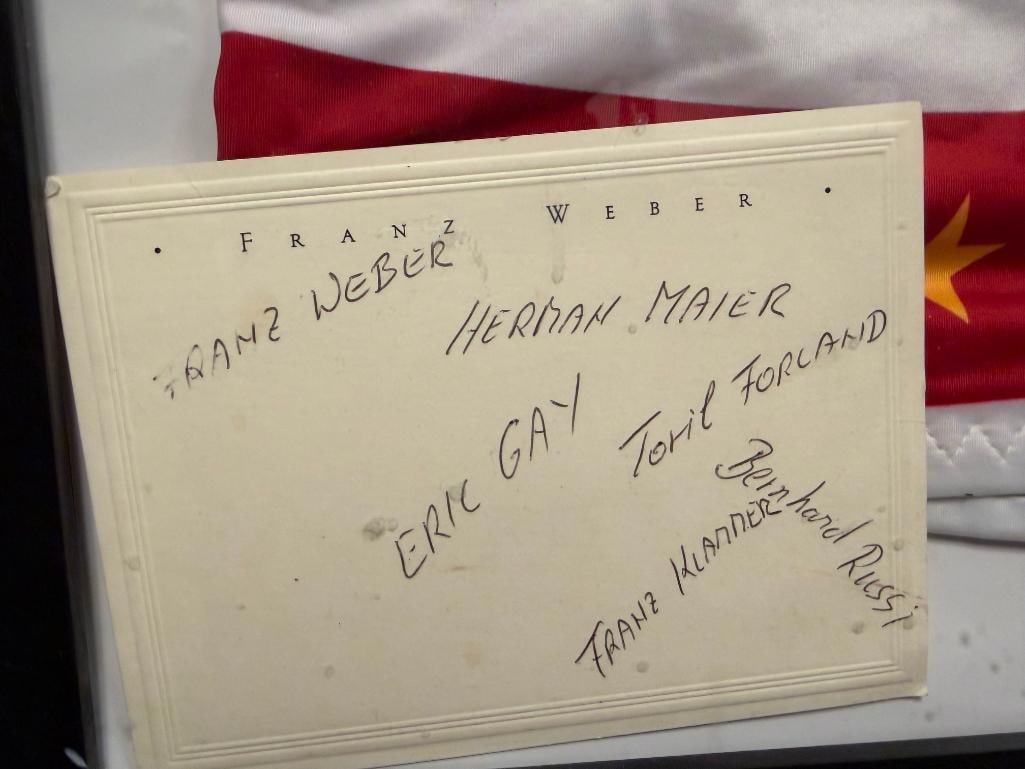 • FRANZ WEBER •
FRANZ WEBER
HERMAN MAIER
ERIC GAY
Toril FORLAND
Bernhard Russi
FRANZ KLAMMER